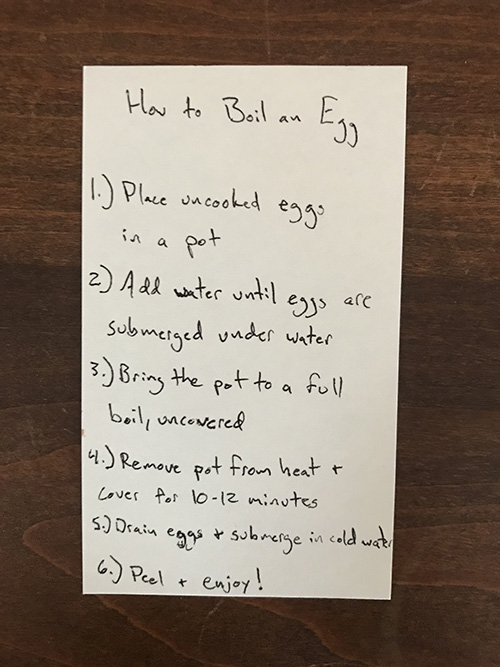 How to Boil an Egg
1.) Place uncooked eggs
in a pot
2) Add water until eggs are
submerged under water
3.) Bring the pot to a full
boil, uncovered
4.) Remove pot from heat +
cover for 10-12 minutes
5.) Drain eggs + submerge in cold water
6.) Peel + enjoy!